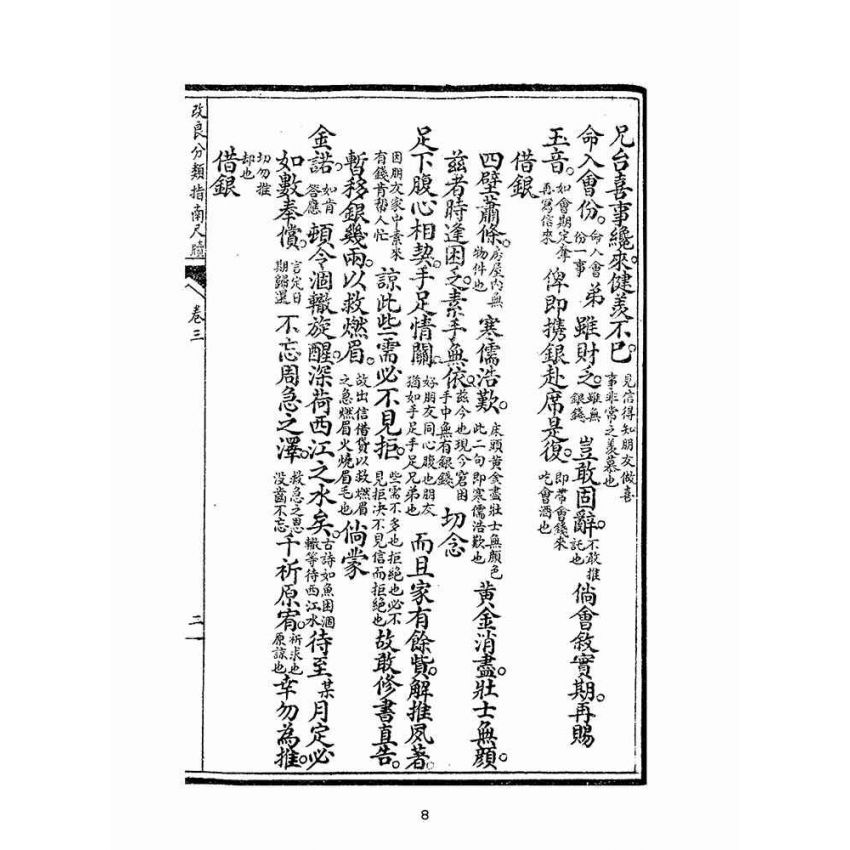 兄台喜事纔來。健羨不已。見信得知朋友做喜事非常之羨慕也
命入會份。命入會份一事弟雖財乏。雖無銀錢豈敢固辭。不敢推託也倘會敘實期。再賜
玉音。如會期定奪再寫信來俾即携銀赴席是復。即帶會錢來吃會酒也
借銀
四壁蕭條。房屋內無物件也寒儒浩歎。床頭黃金盡壯士無顏色此二句即寒儒浩歎也黃金消盡。壯士無顏。
茲者時逢困乏。素手無依。茲今也現今窘困手中無有銀錢切念
足下腹心相契。手足情關。好朋友同心腹也朋友猶如手足手足兄弟也而且家有餘貲。解推夙著。
因朋友家中素來有錢肯幫人忙諒此些需必不見拒。些需不多也拒絕也必不見拒决不見信而拒絕也故敢修書直告。
暫移銀幾兩。以救燃眉。故出信借貸以救燃眉之急燃眉火燒眉毛也倘蒙
金諾。如肯答應頓令涸轍旋醒。深荷西江之水矣。古詩如魚困涸轍等待西江水待至某月定必
如數奉償。言定日期歸還不忘周急之澤。救急之恩沒齒不忘千祈原宥。祈求也原諒也幸勿為推。
切勿推却也
借銀
改良分類指南尺牘
卷三
二
8